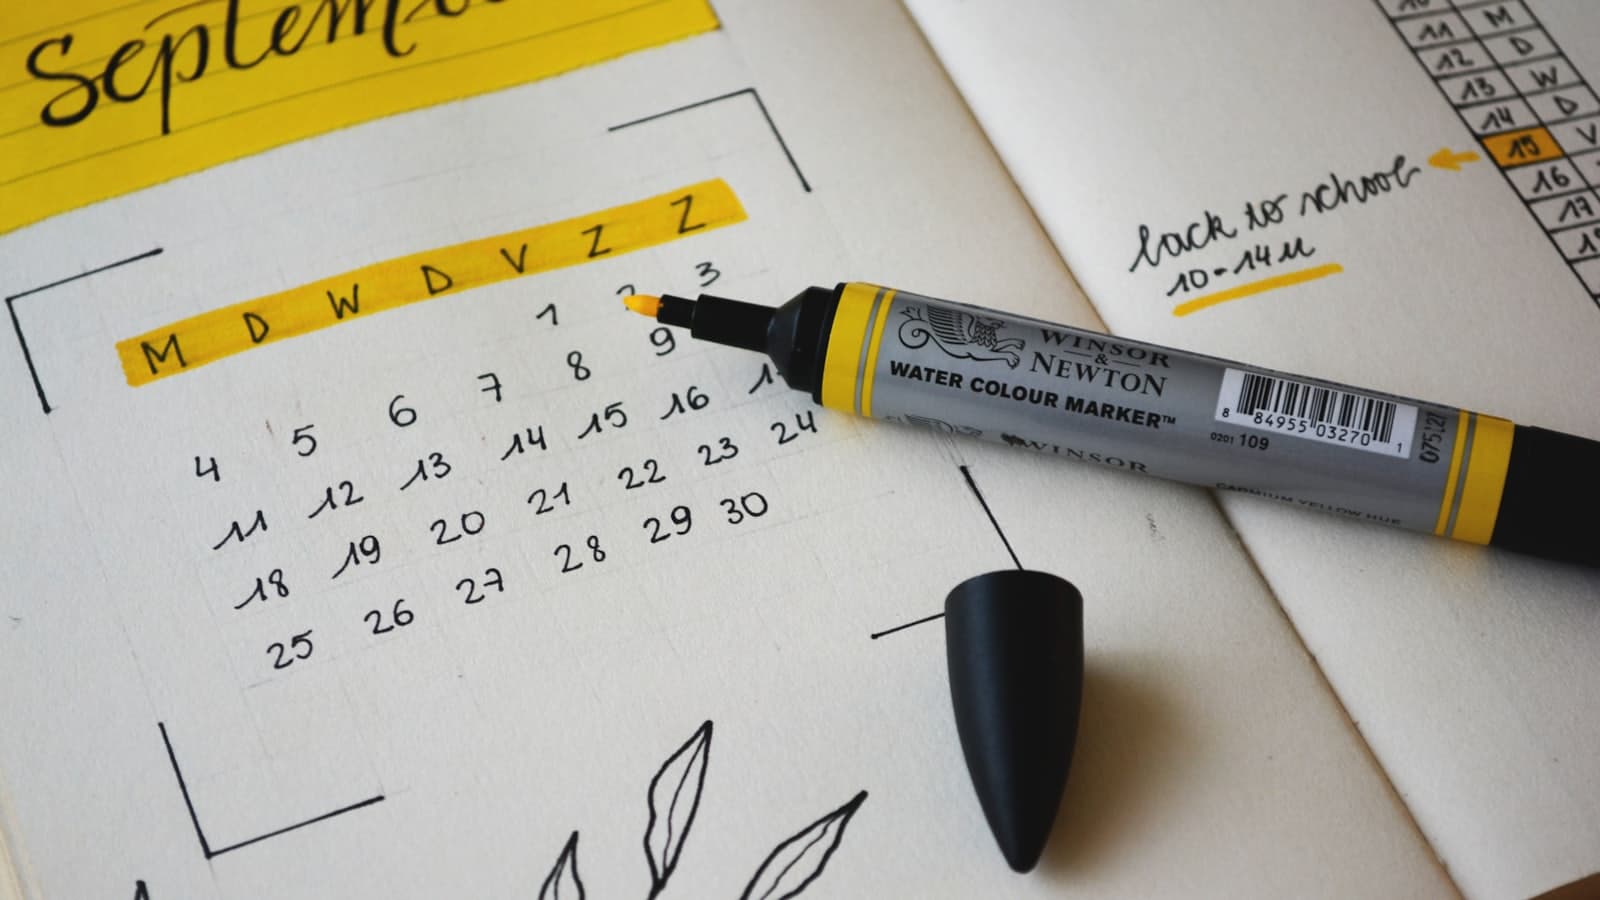 Septemb
M D W D V Z Z
1 2 3
4 5 6 7 8 9
11 12 13 14 15 16 1
18 19 20 21 22 23 24
25 26 27 28 29 30
WINSOR
&
NEWTON
WATER COLOUR MARKER™
WINSOR
CADMIUM YELLOW HUE
8 84955 03270 1
0201 109
075127
back to school
10-14u
10 M
11 D
12 W
13 D
14 V
15
16
17